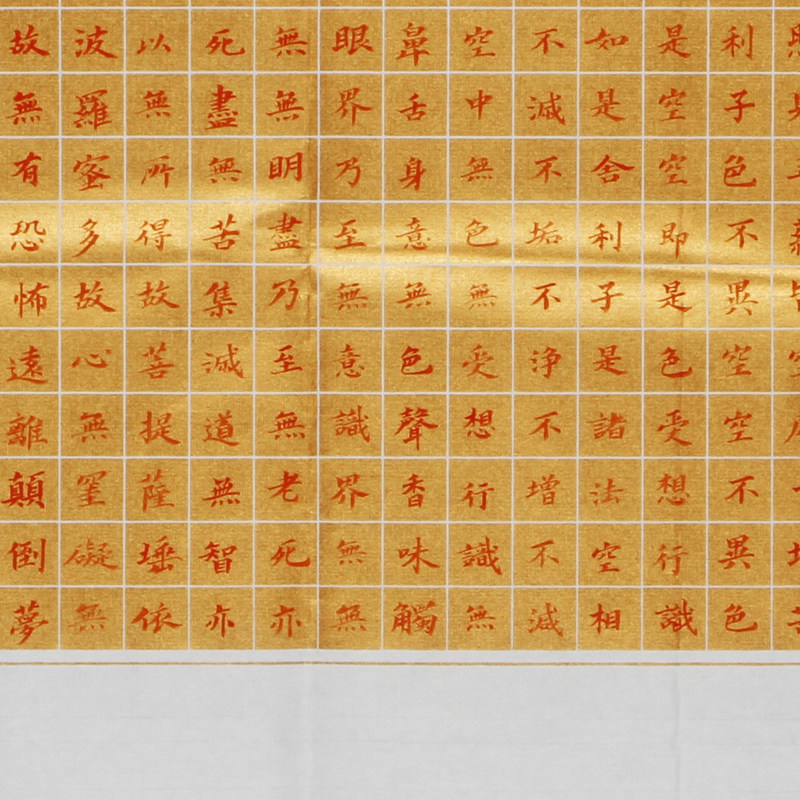 利子色不異空空不異色
是空空即是色受想行識
如是舍利子是諸法空相
不滅不垢不浄不增不減
空中無色無受想行識無
鼻舌身意無色聲香味觸
眼界乃至無意識界無無
無無明盡乃至無老死亦
死盡無苦集滅道無智亦
以無所得故菩提薩埵依
波羅蜜多故心無罣礙無
故無有恐怖遠離顛倒夢